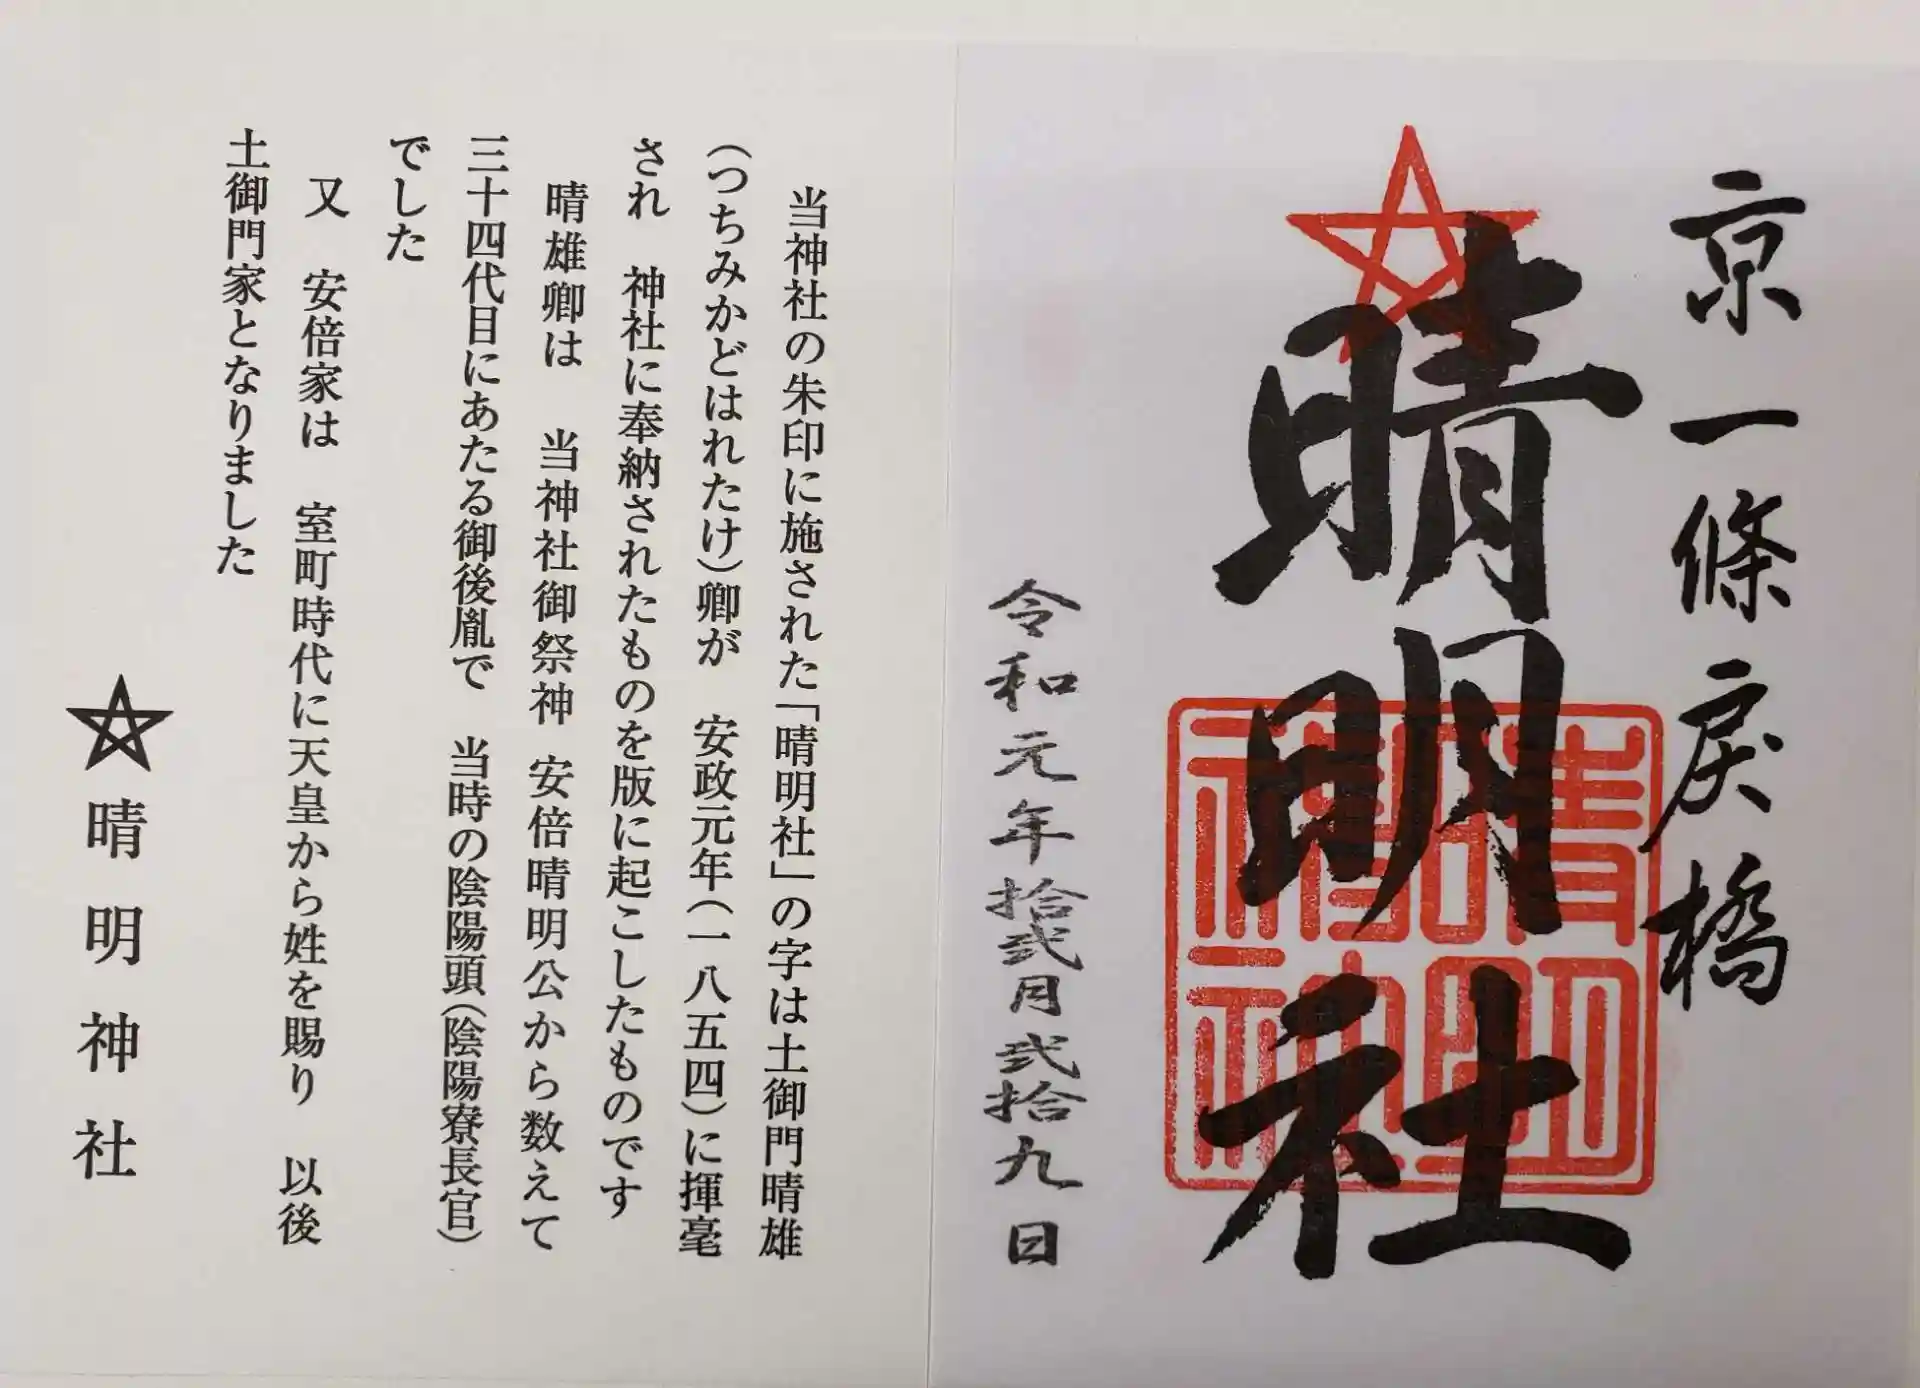 京一條戻橋
晴明社
晴明神社
令和元年拾弐月弐拾九日
当神社の朱印に施された「晴明社」の字は土御門晴雄
(つちみかどはれたけ)卿が　安政元年(一八五四)に揮毫
され　神社に奉納されたものを版に起こしたものです
晴雄卿は　当神社御祭神 安倍晴明公から数えて
三十四代目にあたる御後胤で　当時の陰陽頭(陰陽寮長官)
でした
又　安倍家は　室町時代に天皇から姓を賜り　以後
土御門家となりました
晴明神社